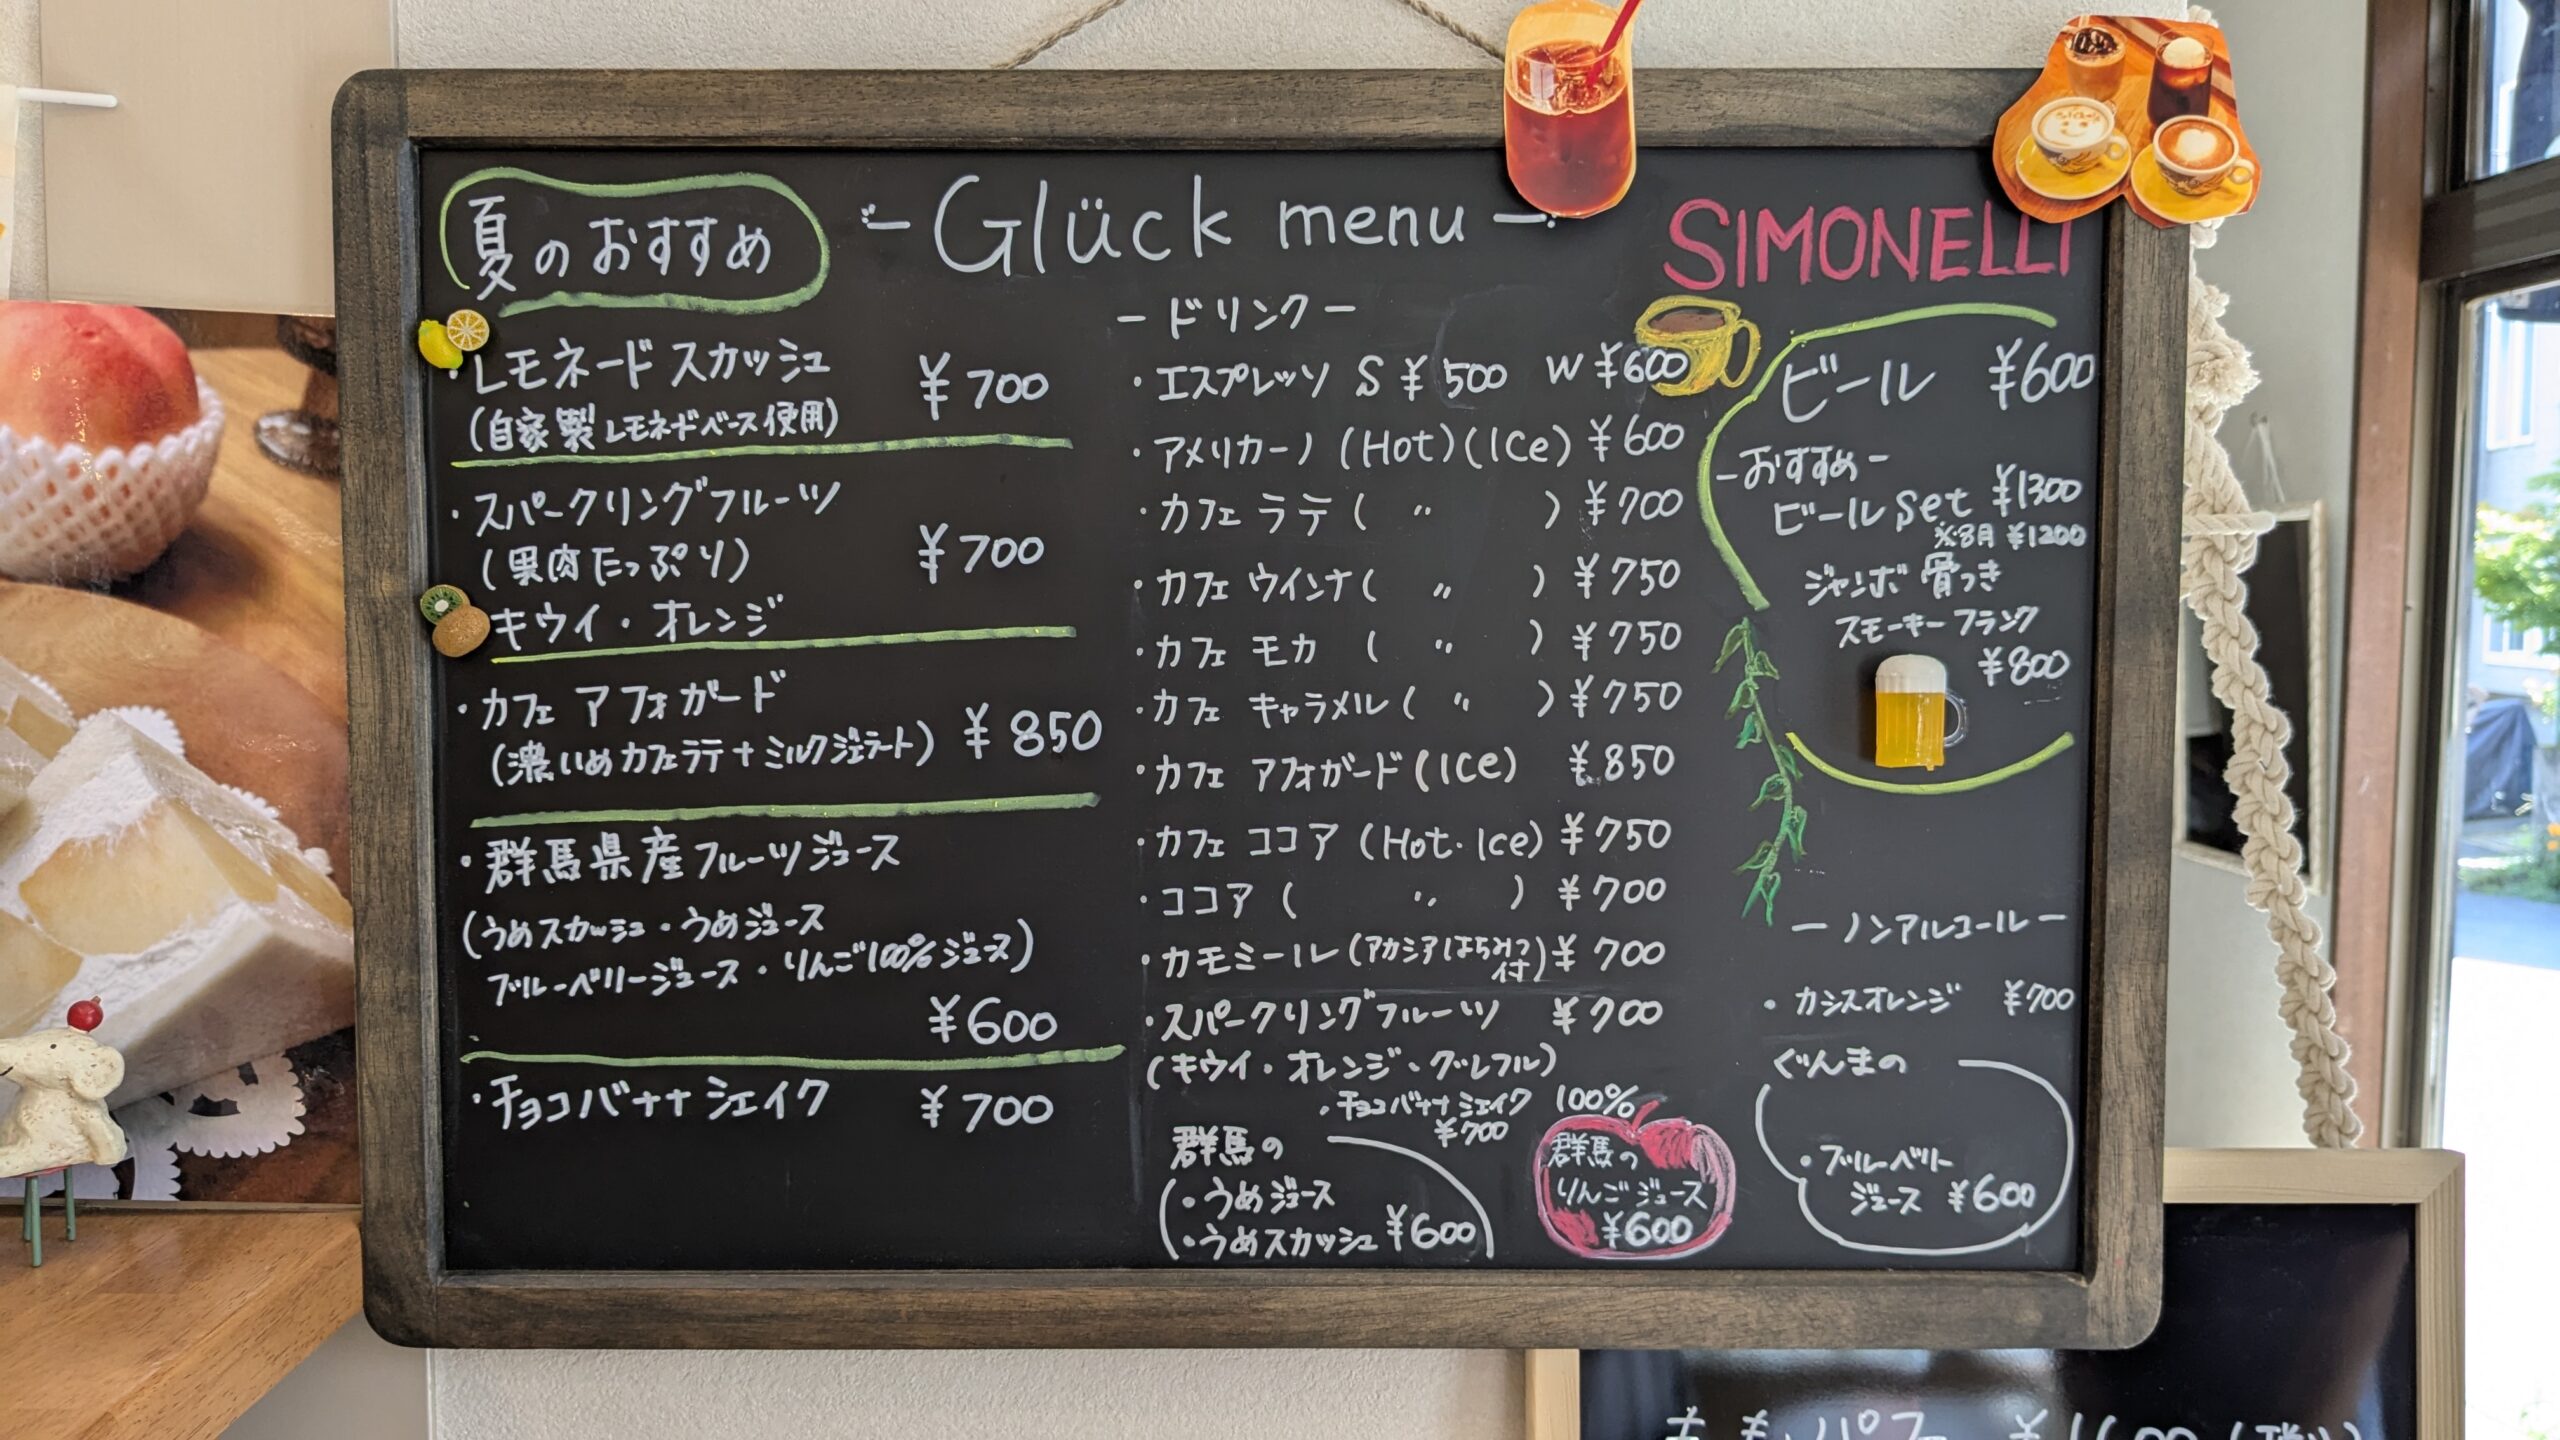 夏のおすすめ
・レモネードスカッシュ ¥700
(自家製レモネードベース使用)
・スパークリングフルーツ
(果肉たっぷり) ¥700
キウイ・オレンジ
・カフェ アフォガード
(濃いめカフェラテ+ミルクジェラート) ¥850
・群馬県産フルーツジュース
(うめスカッシュ・うめジュース
ブルーベリージュース・りんご100%ジュース)
¥600
・チョコバナナシェイク ¥700
Glück menu
-ドリンク-
・エスプレッソ S ¥500 W ¥600
・アメリカーノ (Hot)(Ice) ¥600
・カフェ ラテ ( 〃 ) ¥700
・カフェ ウインナ ( 〃 ) ¥750
・カフェ モカ ( 〃 ) ¥750
・カフェ キャラメル ( 〃 ) ¥750
・カフェ アフォガード (Ice) ¥850
・カフェ ココア (Hot・Ice) ¥750
・ココア ( 〃 ) ¥700
・カモミール (アカシアはちみつ付) ¥700
・スパークリングフルーツ ¥700
(キウイ・オレンジ・グレフル)
・チョコバナナシェイク
¥700
群馬の
・うめジュース
・うめスカッシュ ¥600
100%
群馬の
りんごジュース
¥600
SIMONELLI
ビール ¥600
-おすすめ-
ビールSet ¥1300
※8月 ¥1200
ジャンボ 骨つき
スモーキーフランク
¥800
-ノンアルコール-
・カシスオレンジ ¥700
ぐんまの
・ブルーベリー
ジュース ¥600